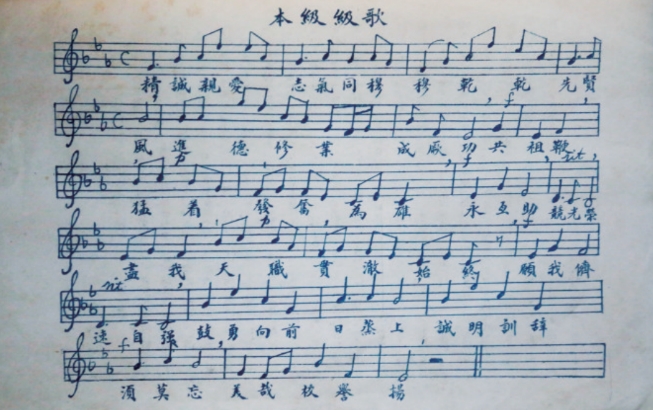 本級級歌
精誠親愛 志氣同穆 穆乾乾先賢
風進德修業 成厥功共祖
猛着發奮為雄 永互助競光榮
盡我天職貫澈始終 願我儕
自強鼓勇向前 日蒸上誠明訓辭
須莫忘美哉校譽揚